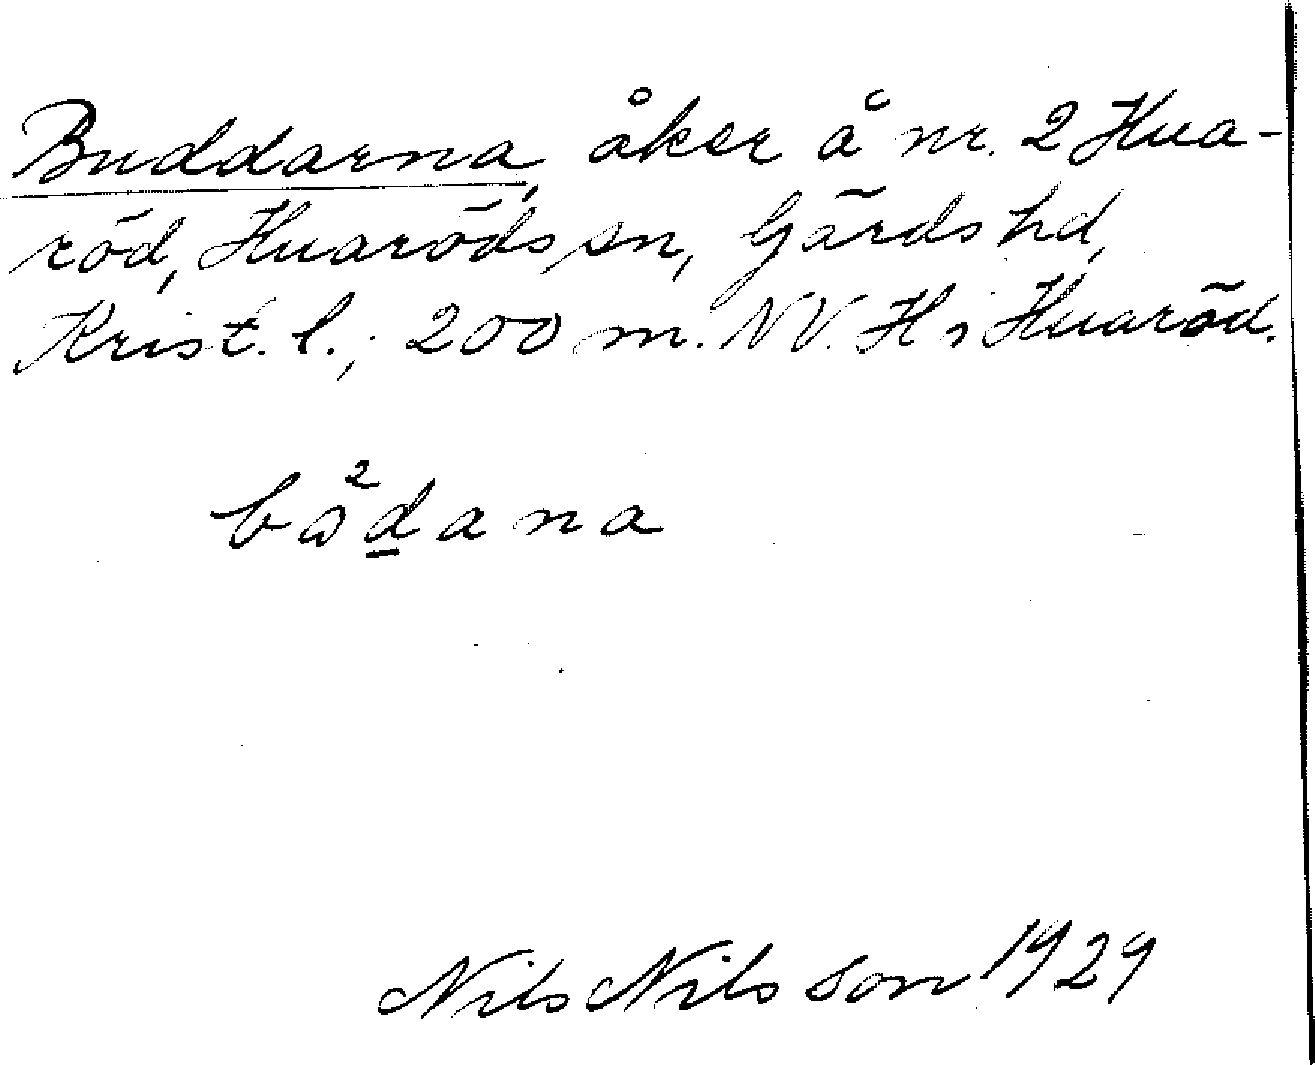 Buddarna, åker å nr. 2 Hua-
röd, Huaröds sn, Gärds hd,
Krist. l.; 200 m. NV. H i Huaröd.
bω²d̲ana
Nils Nilsson 1929